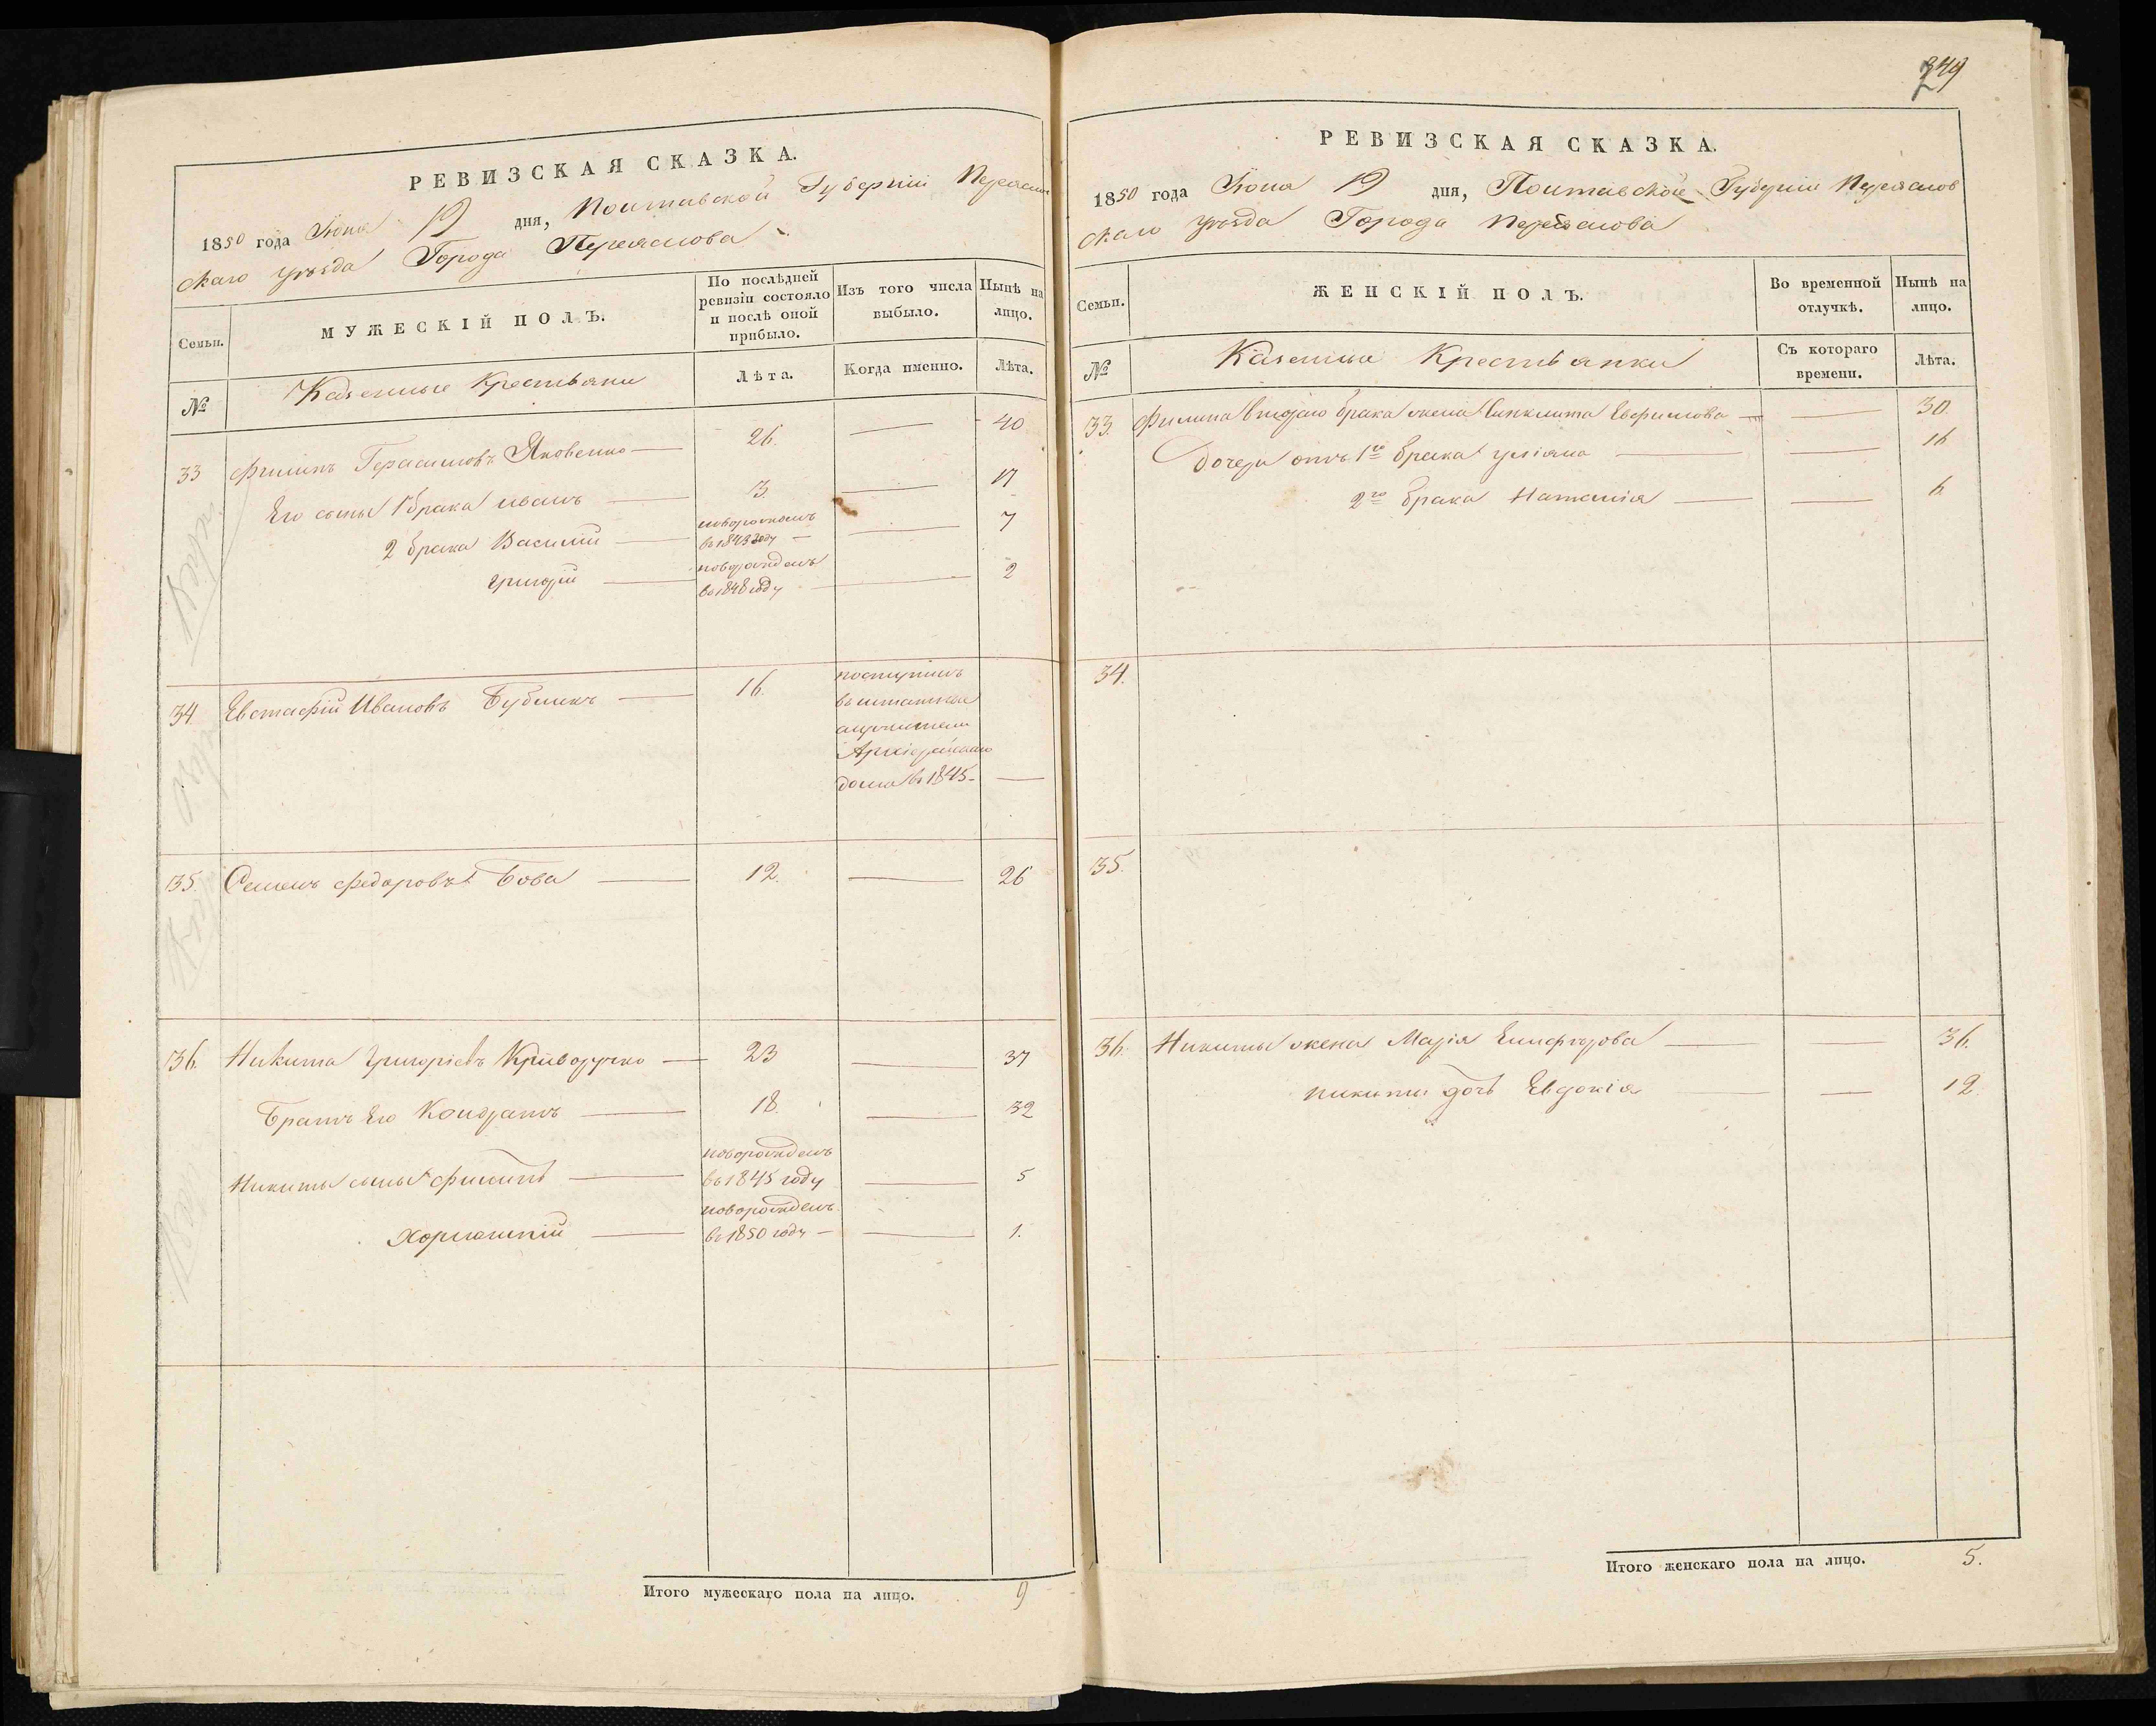 249
РЕВИЗСКАЯ СКАЗКА.
1850 года Іюня 19 дня, Полтавской Губерніи Переяслов
скаго уѣзда Города Переяслова
Семьи.
МУЖЕСКІЙ ПОЛЪ.
По послѣдней ревизіи состояло и послѣ оной прибыло.
Изъ того числа выбыло.
Нынѣ на лицо.
№
Казенные Крестьяни
Лѣта.
Когда именно.
Лѣта.
33 Филипъ Герасимовъ Яковенко 26. 40
Его сыны 1 брака Иванъ 3. 17
2 брака Василій новорожденъ 7
в 1843 году
Григорій новорожденъ 2
въ 1848 году
34. Евстафій Ивановъ Бубликъ 16. поступилъ
въ штатные
служители
Архіерейскаго
дома въ 1845
35. Семенъ Федоровъ Бова 12. 26
36. Никита Григоріевъ Криворучко 23 37
Братъ Его Кондратъ 18. 32
новорожденъ
Никиты сыны Филипъ въ 1845 году 5
новорожденъ
Харлампій въ 1850 году 1.
Итого мужескаго пола на лицо. 9
РЕВИЗСКАЯ СКАЗКА.
1850 года Іюня 19 дня, Полтавской Губерніи Переяслов
скаго уѣзда Города Переяслова
Семьи.
ЖЕНСКІЙ ПОЛЪ.
Во временной отлучкѣ.
Нынѣ на лицо.
№
Казенные Крестьянки
Съ котораго времени.
Лѣта.
33. Филипа втораго брака жена Синклита Евфимова 30.
Дочери отъ 1го брака Уліяна 16
2го брака Наталія 6.
34.
35.
36. Никиты жена Марія 36.
Никиты дочь Евдокія 12.
Итого женскаго пола на лицо. 5.